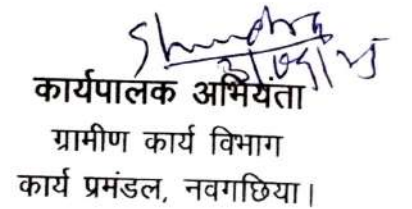 कार्यपालक अभियंता
ग्रामीण कार्य विभाग
कार्य प्रमंडल, नवगछिया।